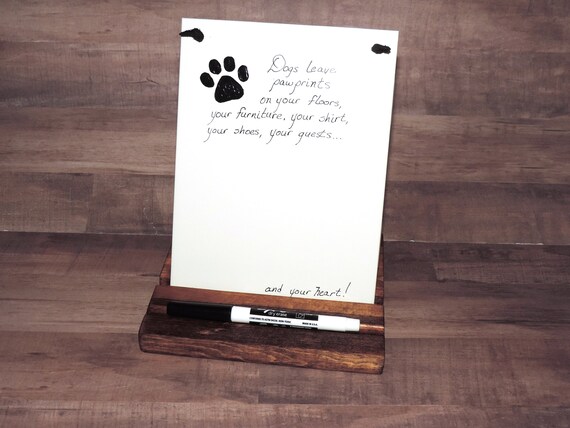 Dogs leave
pawprints
on your floors,
your furniture, your shirt,
your shoes, your guests...
and your heart!